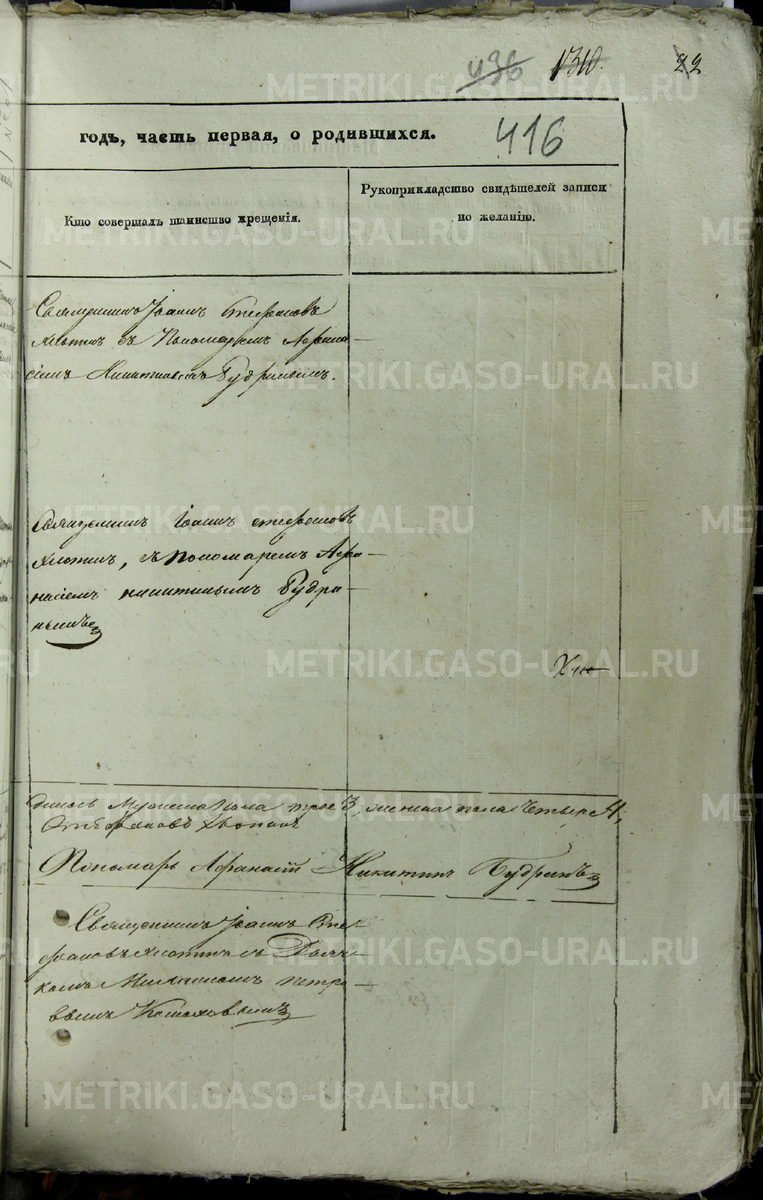 436 1310. 22
416
годъ, часть первая, о родившихся.
Кто совершалъ таинство крещенія.
Рукоприкладство свидѣтелей записи
по желанію.
Священникъ Іоаннъ Стефановъ
Хлопинъ съ Пономаремъ Афана–
сіемъ Никитинымъ Будринымъ.
Священникъ Іоаннъ Стефановъ
Хлопинъ, съ Пономаремъ Афа–
насіемъ Никитинымъ Будри–
нымъ
мужеска пола трое 3, женска пола четыре 4,
Стефановъ Хлопинъ
Пономарь Афанасій Никитинъ Будринъ
Священникъ Іоаннъ Сте–
фановъ Хлопинъ съ Дьяч–
комъ Петро–
вымъ
METRIKI.GASO-URAL.RU